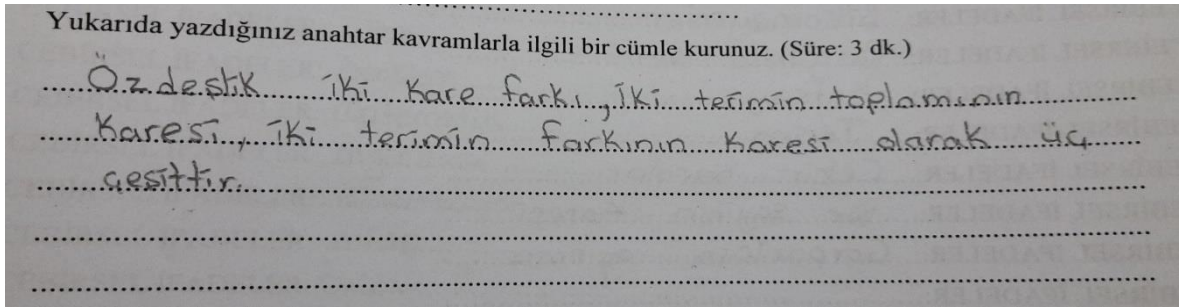 Yukarıda yazdığınız anahtar kavramlarla ilgili bir cümle kurunuz. (Süre: 3 dk.)
Özdeşlik iki kare farkı, iki terimin toplamının
karesi, iki terimin farkının karesi olarak üç
çeşittir.